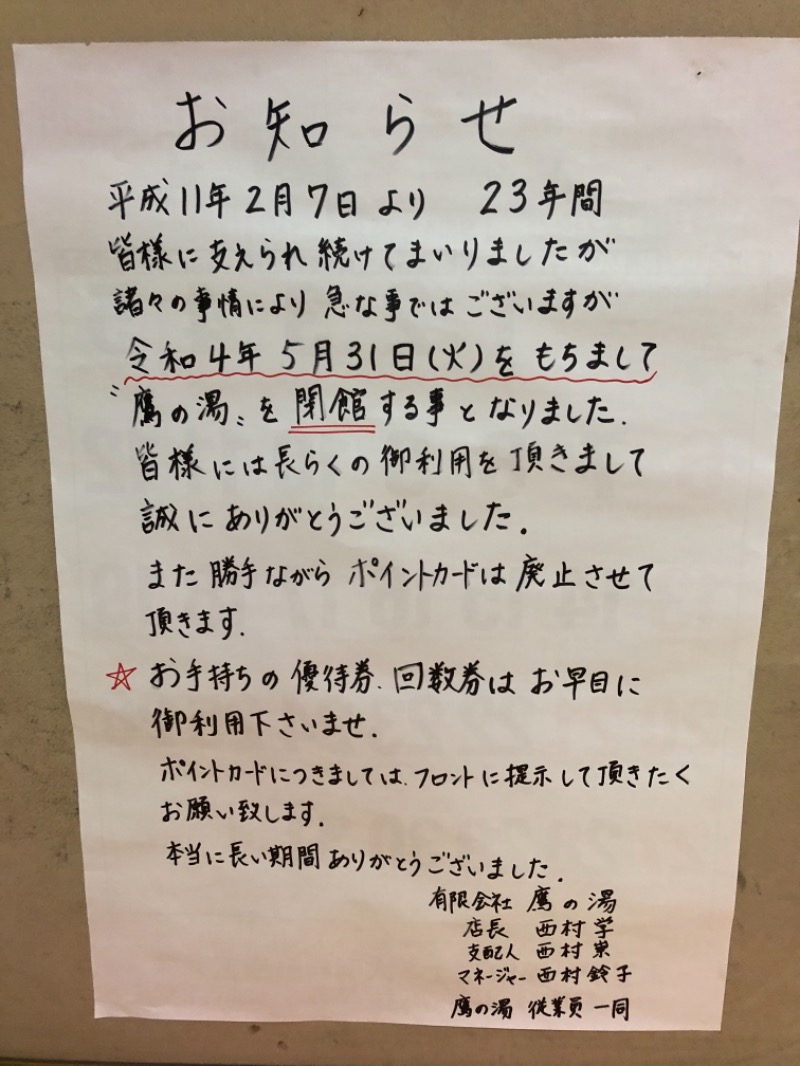 お知らせ
平成11年2月7日より 23年間
皆様に支えられ続けてまいりましたが
諸々の事情により急な事ではございますが
令和4年5月31日(火)をもちまして
〝鷹の湯〟を閉館する事となりました.
皆様には長らくの御利用を頂きまして
誠にありがとうございました.
また勝手ながらポイントカードは廃止させて
頂きます.
☆お手持ちの優待券、回数券はお早目に
御利用下さいませ.
ポイントカードにつきましては、フロントに提示して頂きたく
お願い致します.
本当に長い期間ありがとうございました.
有限会社 鷹の湯
店長 西村 学
支配人 西村
マネージャー 西村鈴子
鷹の湯 従業員一同